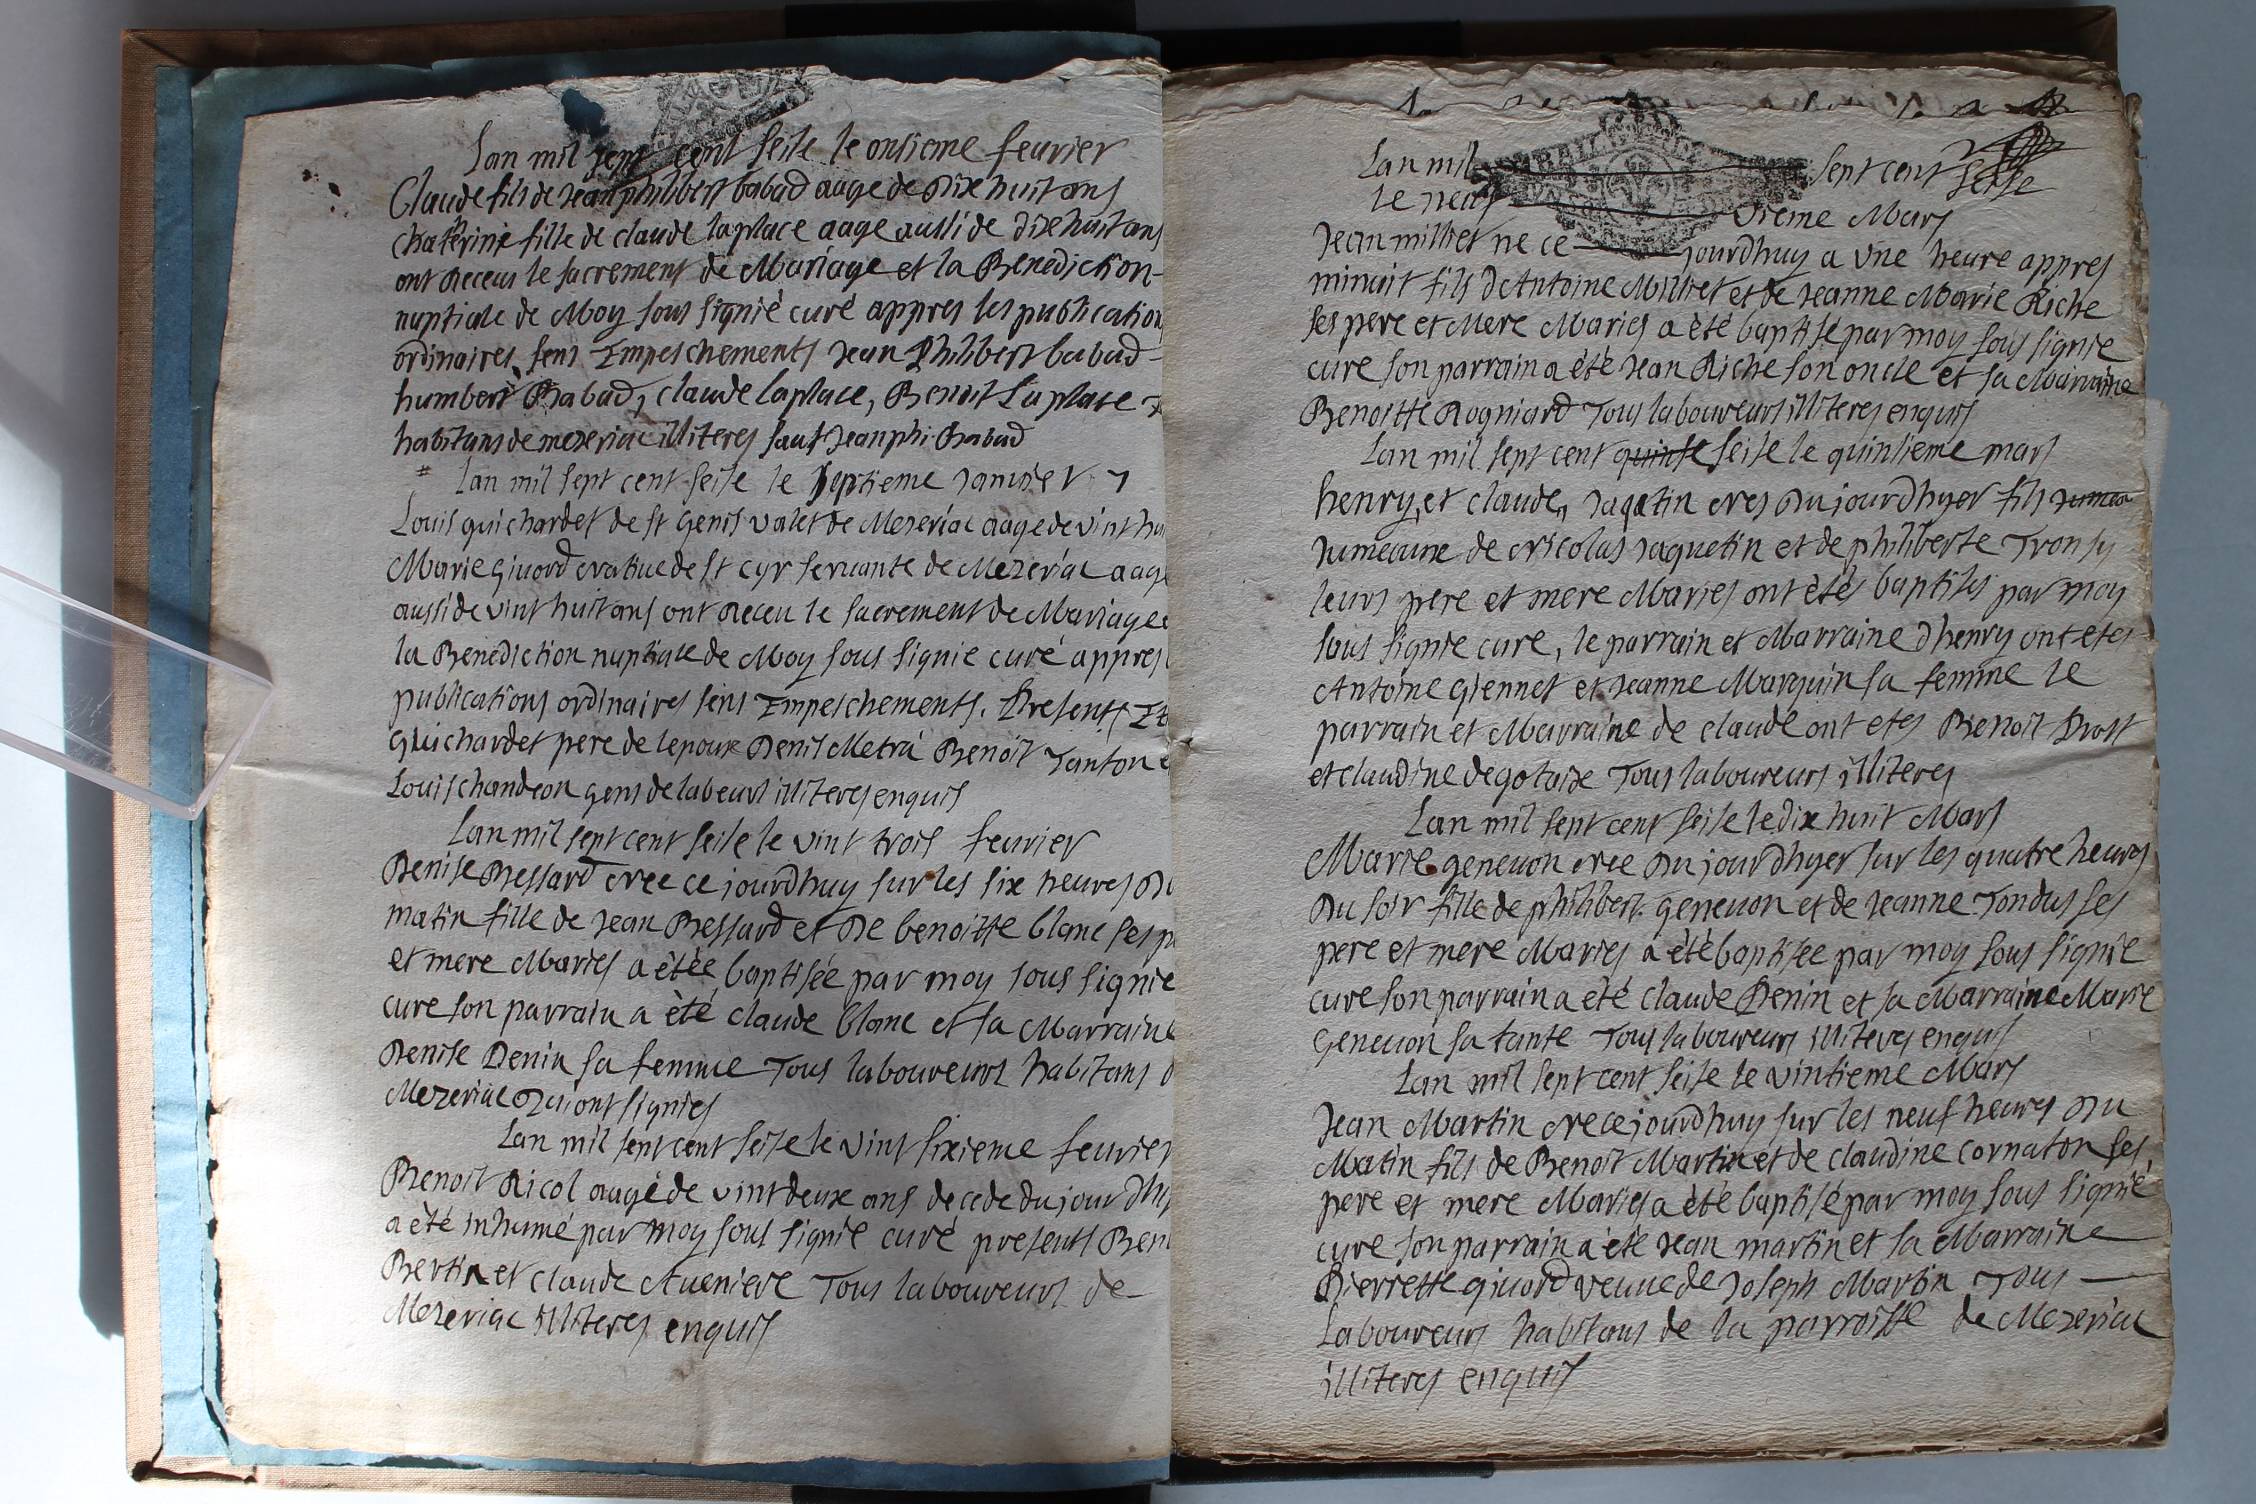 Lan mil sept cent seise le onsieme feurier
Claude fils de Jean philibert babad aage de dixe huit ans
chaterine fille de claude laplace aage aussi de dixe huit ans
ont Receus le sacrement de Mariage et la Benediction
nuptiale de Moy sous signié curé appres les publication
ordinaires sens Impeschements Jean Philibert babad
humbert Babad, claude laplace, Benoit Laplace
habitans de mezeriac illiteres sauf Jean phi Babad
Lan mil sept cent seise le septieme Janvier
Louis guichardet de st Genis valet de Mezeriac aage de vint hu
Marie givord native de st cyr servante de Mezeriac aage
aussi de vint huit ans ont Receu le sacrement de Mariage e
la Benediction nuptiale de Moy sous signie curé appres
publications ordinaires sens Impeschements. Presents
Guichardet pere de lepoux Denis Metra Benoit Tanton
Louis chandeon gens de labeurs illiteres enquis
Lan mil sept cent seise le vint trois feurier
Denise Bessard nee ce jourdhuy sur les six heures du
matin fille de Jean Bessard et De benoitte blanc ses p
et mere Maries a étée baptisée par moy sous signie
cure son parrain a èté claude blanc et sa Marraine
Denise Denin sa femme Tous laboureurs habitans d
Mezeriac signies
Lan mil sept cent seise le vint sixieme feurier
Benoit Ricol aagé de vint deux ans decede du jour dhy
a èté inhumé par moy sous signie curé presents Ben
Bertin et claude Aueniere Tous laboureurs de
Mezeriac illiteres enquis
Lan mil sept cent seise
le neuf vieme Mars
Jean milliet ne ce jourdhuy a une heure appres
minuit fils dAntoine Milliet et de Jeanne Marie Riche
ses pere et Mere Maries a èté baptisé par moy sous signie
cure son parrain a été Jean Riche son oncle et sa Marraine
Benoitte Rogniard Tous laboureurs illiteres enquis
Lan mil sept cent quinse seise le quinsieme mars
henry, et claude, Jaqetin nes du jourdhyer fils
Jumeaux de nicolas Jaquetin et de philiberte Tronsy
leurs pere et mere Maries ont étés baptises par moy
sous signie cure, le parrain et Marraine dhenry ont etes
Antoine Giennet et Jeanne Marguin sa femme le
parrain et Marraine de claude ont etes Benoit Prost
et claudine degotaise Tous laboureurs illiteres
Lan mil sept cent seise le dix huit Mars
Marie geneuon nee du jour dhyer sur les quatre heures
du soir fille de philibert geneuon et de Jeanne Tondus ses
pere et mere Maries a èté baptisée par moy sous signie
cure son parrain a été claude Denin et sa Marraine Marie
Geneuon sa tante Tous laboureurs illiteres enquis
Lan mil sept cent seise le vintieme Mars
Jean Martin ne ce jourdhuy sur les neuf heures du
Matin fils de Benoit Martin et de claudine cornaton ses
pere et mere Maries a èté baptisé par moy sous signié
cure son parrain a été Jean martin et sa Marraine
Pierrette givord veuue de Joseph Martin Tous
Laboureurs habitans de la parroisse de Mezeriac
illiteres enquis